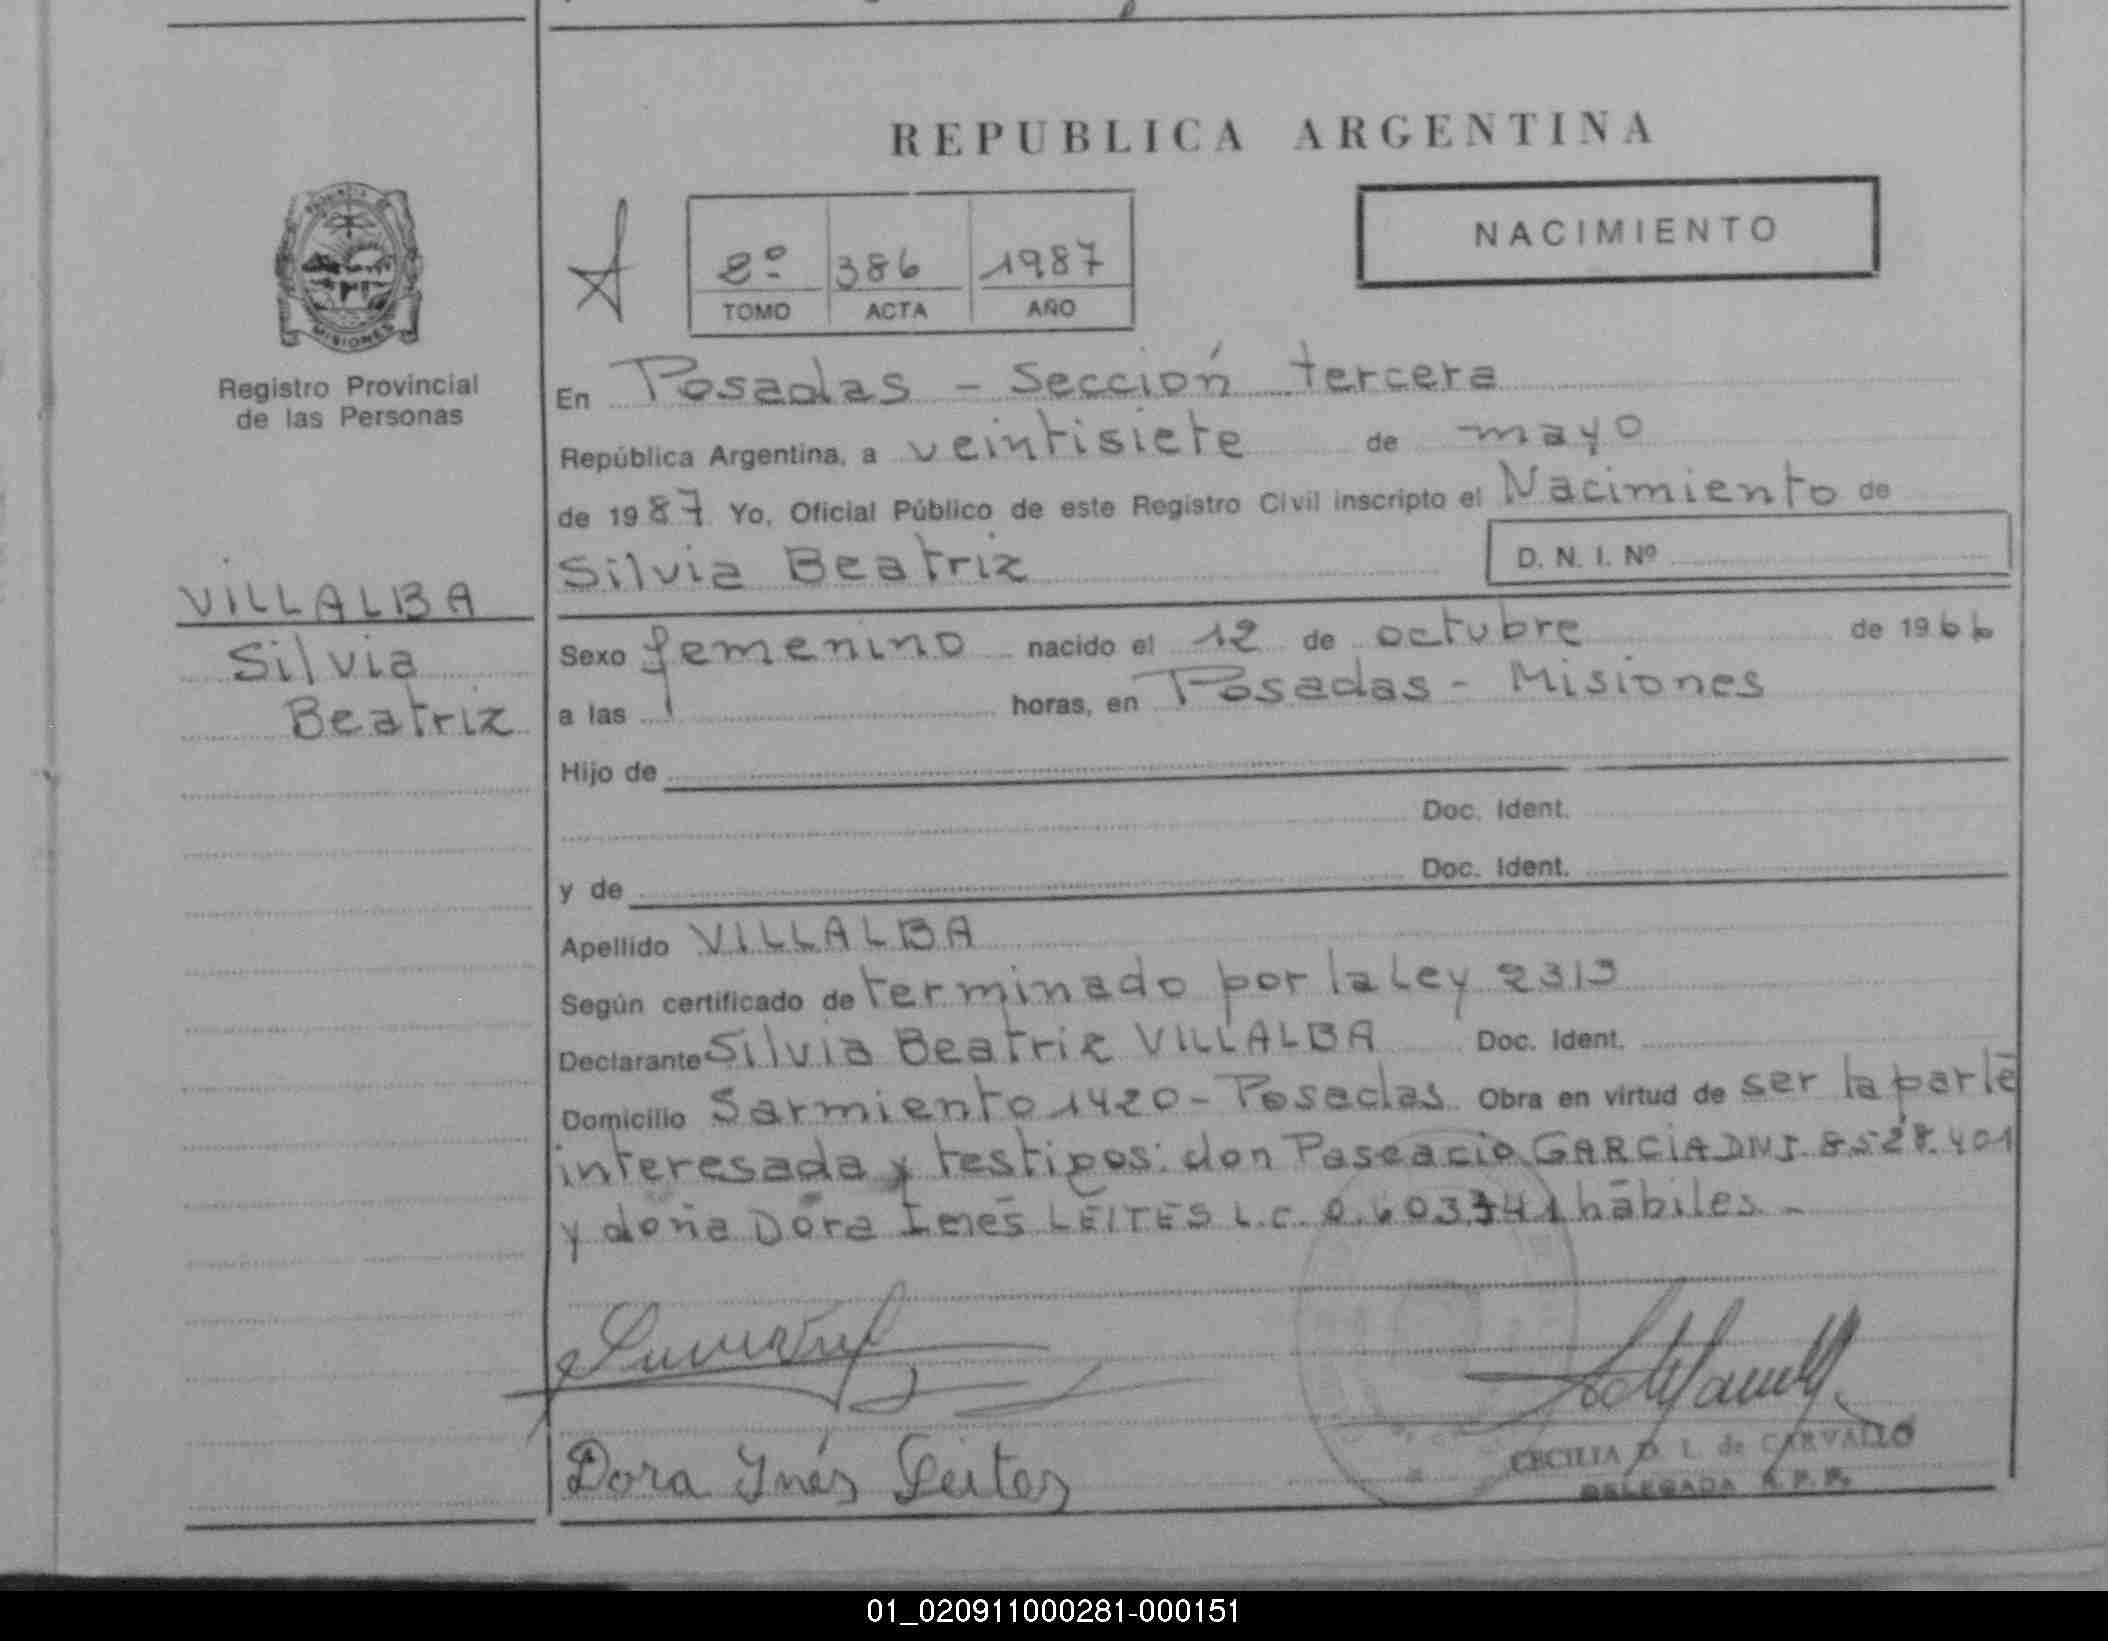 REPUBLICA ARGENTINA
NACIMIENTO
2º 386 1987
TOMO ACTA AÑO
MISIONES
Registro Provincial
de las Personas
VILLALBA
Silvia
Beatriz
En Posadas - Sección tercera
República Argentina, a veintisiete de mayo
de 1987 Yo, Oficial Público de este Registro Civil inscripto el Nacimiento de
Silvia Beatriz D. N. I. Nº
Sexo femenino nacido el 12 de octubre de 1966
a las horas, en Posadas - Misiones
Hijo de
Doc. Ident.
y de Doc. Ident.
Apellido VILLALBA
Según certificado de terminado por la Ley 2313
Declarante Silvia Beatriz VILLALBA Doc. Ident.
Domicilio Sarmiento 1420 - Posadas Obra en virtud de ser la parte
interesada y testigos: don GARCIA DNI. 8.528.401
y doña Dora Inés LEITES L.C. hábiles. -
Dora Inés Leites
CECILIA D. L. de CARVALLO
DELEGADA R. P. P.
01_020911000281-000151